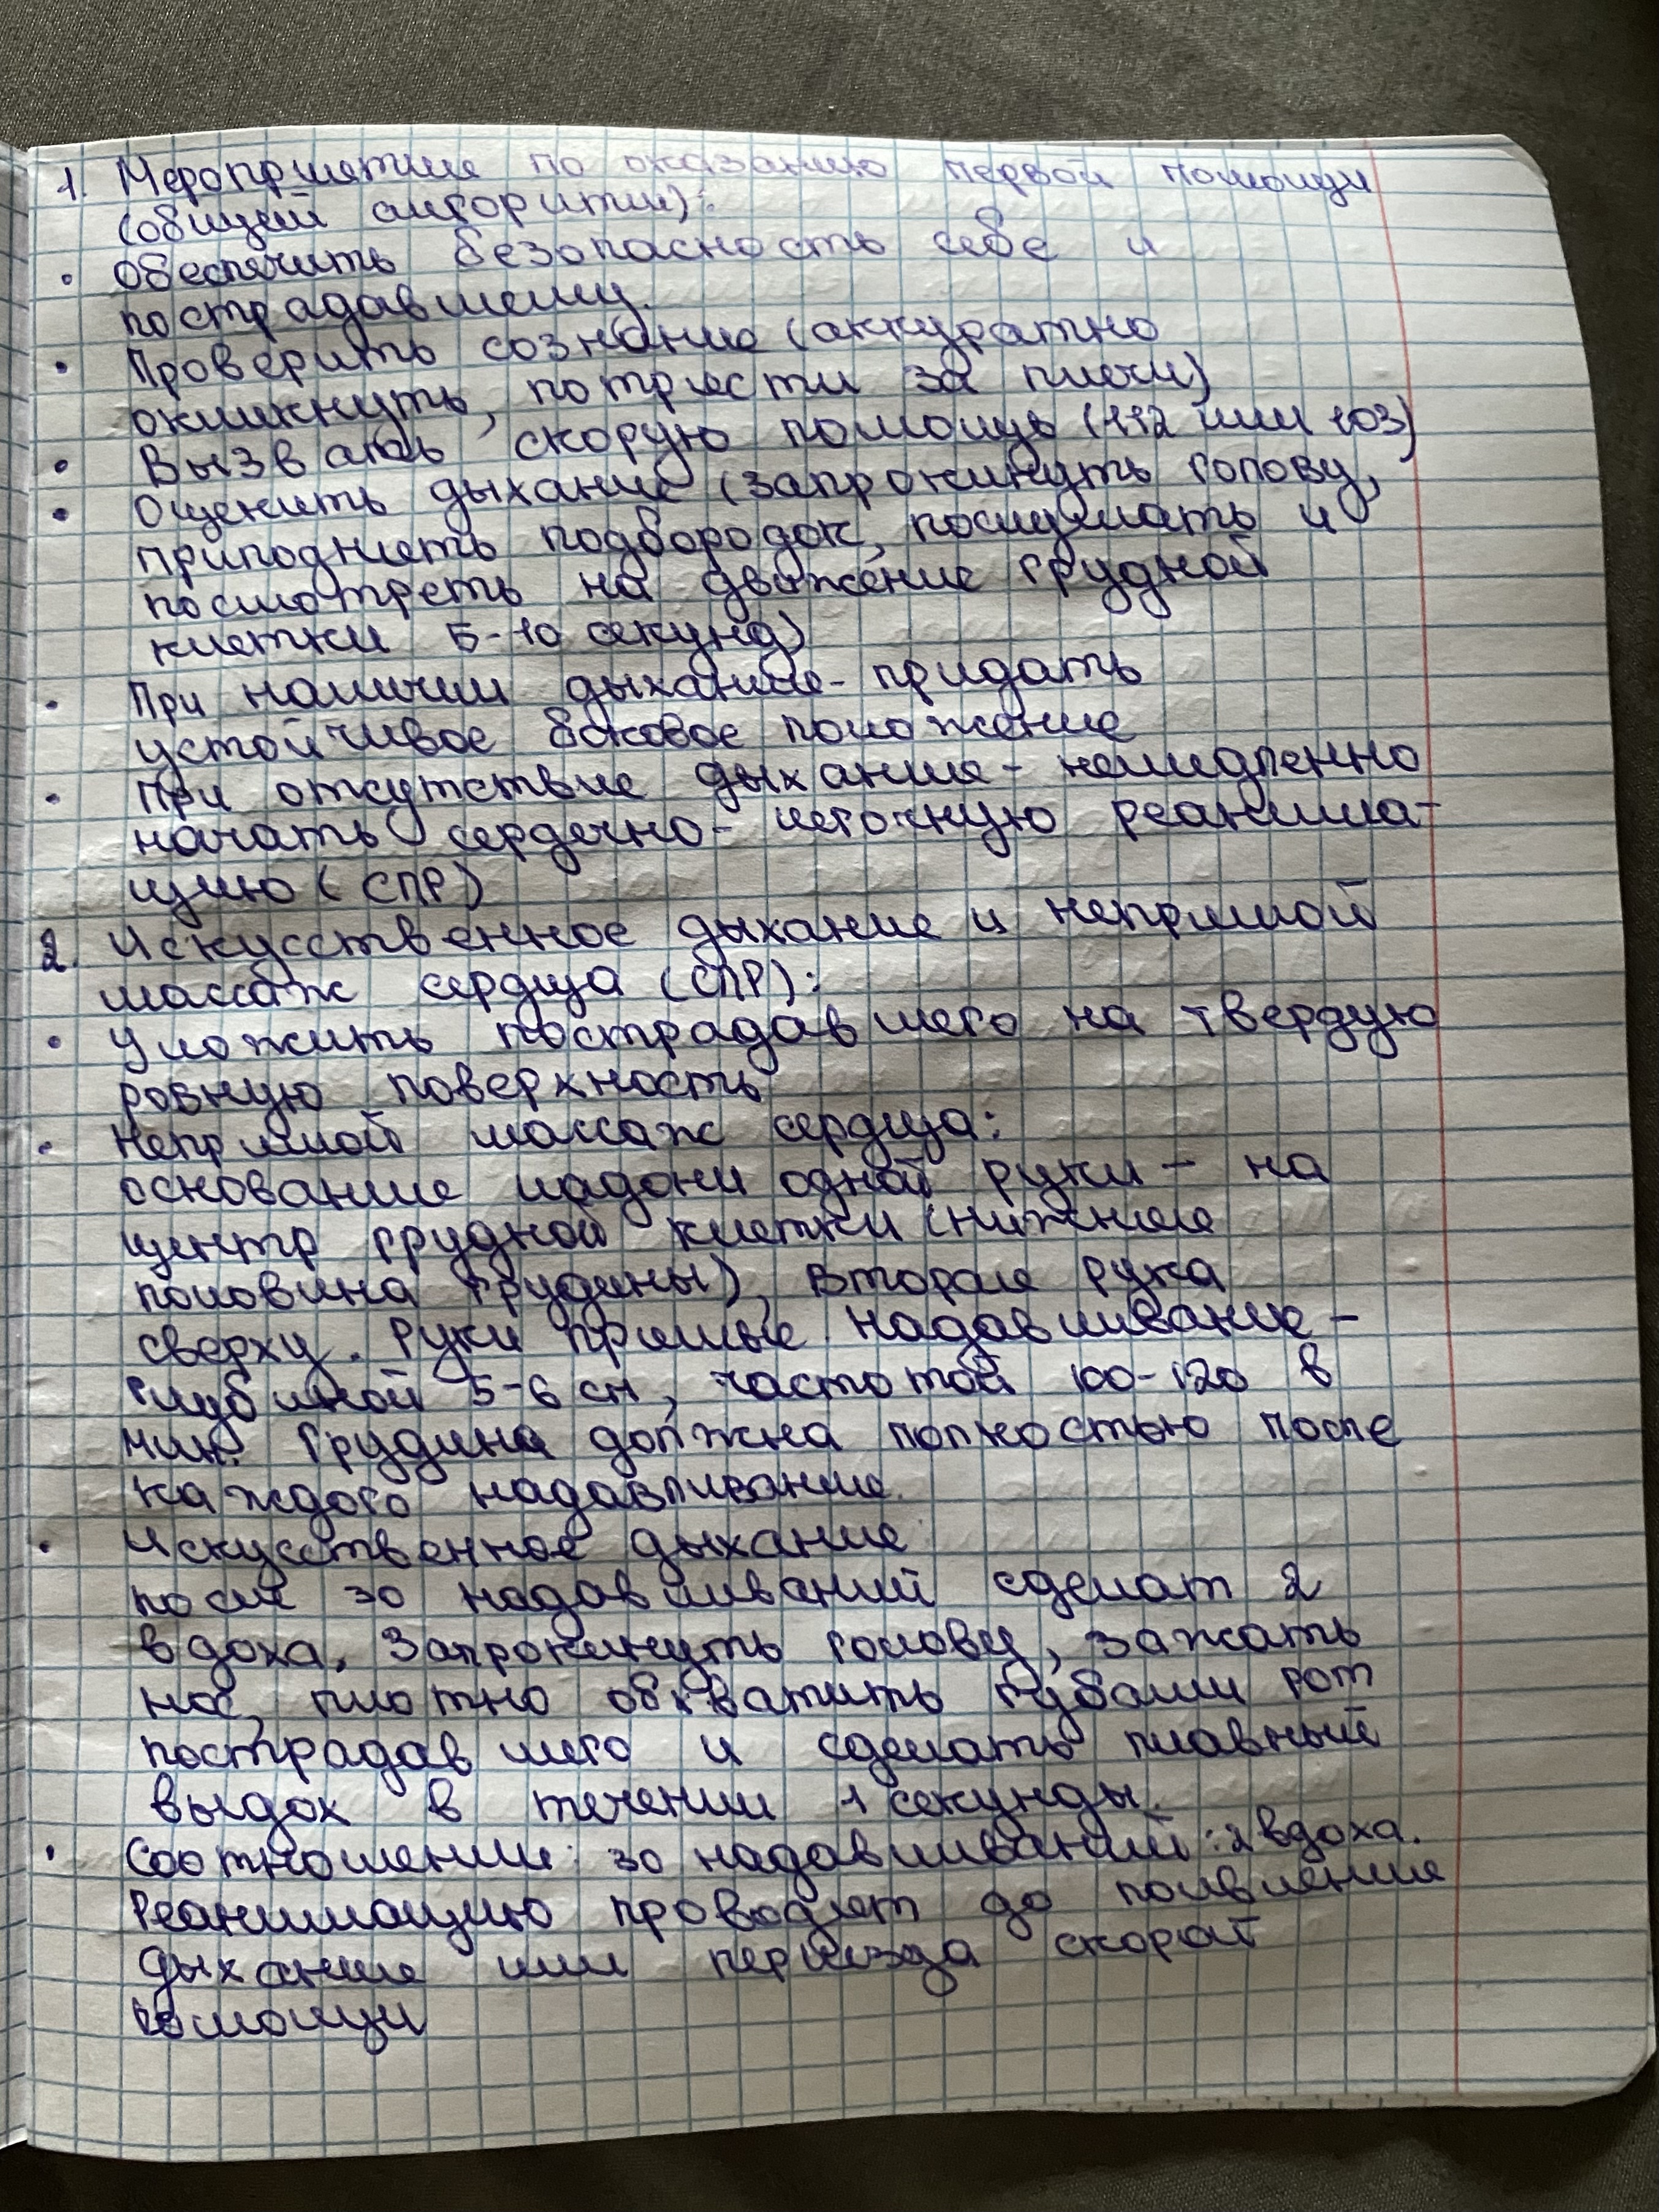 1. Мероприятие по оказанию первой помощи
(общий алгоритм):
• Обеспечить безопасность себе и
пострадавшему.
• Проверить сознание (аккуратно
окликнуть, потрясти за плечи)
• Вызвать скорую помощь (112 или 103)
• Оценить дыхание (запрокинуть голову,
приподнять подбородок, послушать и
посмотреть на движение грудной
клетки 5-10 секунд)
• При наличии дыхание - придать
устойчивое боковое положение
• При отсутствие дыхания - немидленно
начать сердечно-легочную реанима-
цию (СПР)
2. Искусственное дыхание и непрямой
массаж сердца (СПР):
• Уложить пострадавшего на твердую
ровную поверхность
• Непрямой массаж сердца:
основание ладони одной руки - на
центр грудной клетки (нижняя
половина грудины), вторая рука
сверху. Руки прямые. Надавливание -
глубиной 5-6 см, частотой 100-120 в
мин. Грудина должна полностью после
каждого надавливание.
• Искусственное дыхание
после 30 надавливаний сделат 2
вдоха. Запрокинуть голову, зажать
нос, плотно обхватить губами рот
пострадавшего и сделать плавный
выдох в течении 1 секунды.
• Соотношении: 30 надавливаний : 2 вдоха.
Реанимацию проводят до появление
дыхание или переезда скорой
помощи